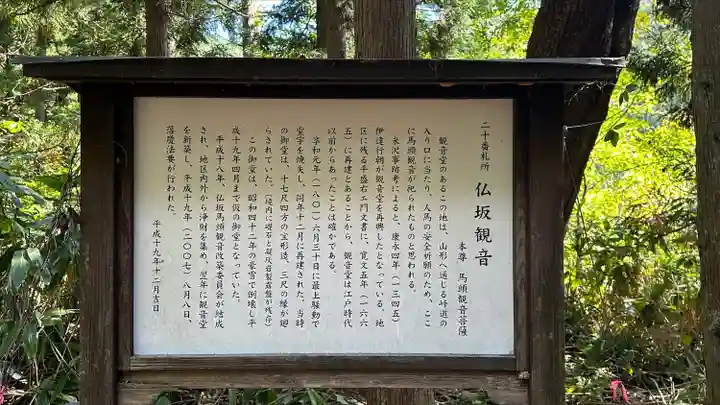 二十番札所　仏坂観音
本尊　馬頭観音菩薩
観音堂のあるこの地は、山形へ通じる峠道の
入り口に当たり、人馬の安全祈願のため、ここ
に馬頭観音が祀られたものと思われる。
米沢事跡考によると、康永四年（一三四五）
伊達行朝が観音堂を再興したとなっている。地
区に残る手盛右エ門文書に、寛文五年（一六六
五）に再建とあることから、観音堂は江戸時代
以前からあったことは確かである。
享和元年（一八〇一）六月三十日に最上騒動で
堂宇を焼失し、同年十二月に再建された。当時
の御堂は、十七尺四方の宝形造、三尺の縁が廻
らされていた。（境内に礎石と凝灰岩製露盤が残存）
この御堂は、昭和四十二年の豪雪で倒壊し平
成十九年四月まで仮の御堂となっていた。
平成十八年、仏坂馬頭観音改築委員会が結成
され、地区内外から浄財を集め、翌年に観音堂
を新築し、平成十九年（二〇〇七）八月八日、
落慶法要が行われた。
平成十九年十二月吉日